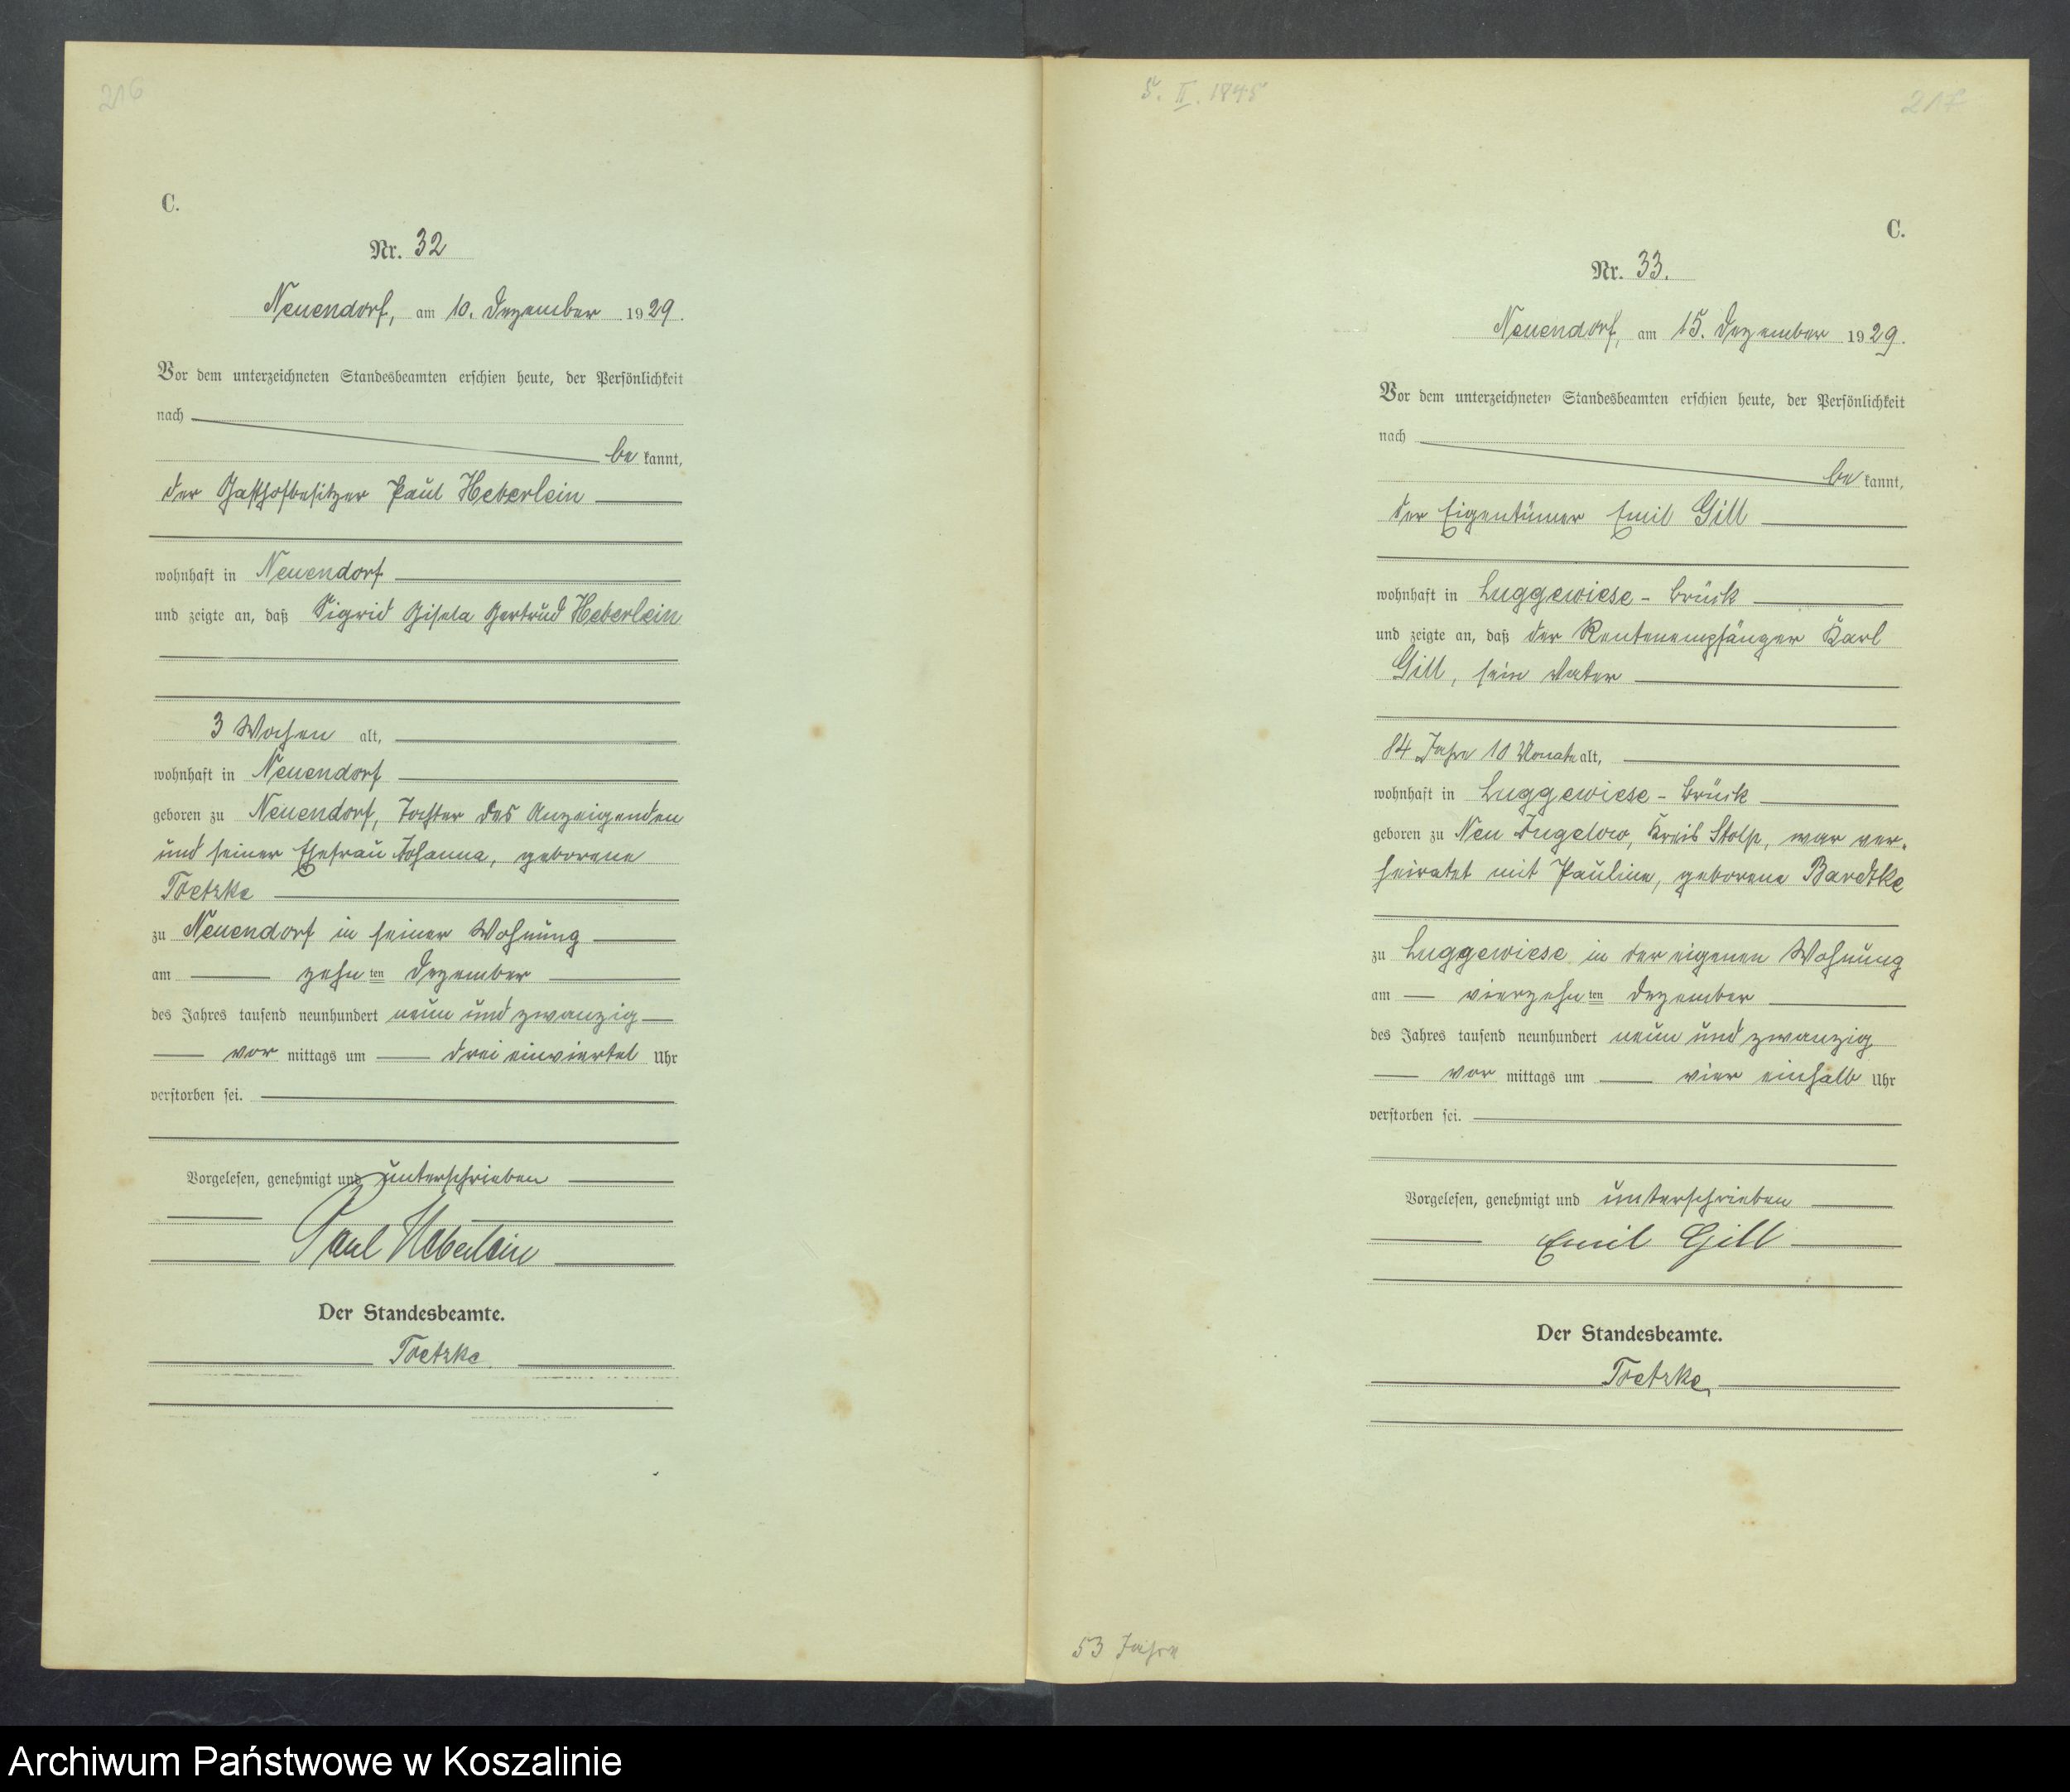 216
C.
Nr. 32
Neuendorf, am 10. Dezember 1929.
Vor dem unterzeichneten Standesbeamten erschien heute, der Persönlichkeit
nach
be kannt,
der Gasthofbesitzer Paul Heberlein
wohnhaft in Neuendorf
und zeigte an, daß Sigrid Gisela Gertrud Heberlein
3 Wochen alt,
wohnhaft in Neuendorf
geboren zu Neuendorf, Tochter des Anzeigenden
und seiner Ehefrau Johanna, geborene
Toetzke
zu Neuendorf in seiner Wohnung
am zehn ten Dezember
des Jahres tausend neunhundert neun und zwanzig
vor mittags um drei einviertel Uhr
verstorben sei.
Vorgelesen, genehmigt und unterschrieben
Paul Heberlein
Der Standesbeamte.
Toetzke.
5. II. 1845
217
C.
Nr. 33.
Neuendorf, am 15. Dezember 1929.
Vor dem unterzeichneten Standesbeamten erschien heute, der Persönlichkeit
nach
be kannt,
der Eigentümer Emil Gill
wohnhaft in Luggewiese - Brück
und zeigte an, daß der Rentenempfänger Karl
Gill, sein Vater
84 Jahre 10 Monate alt,
wohnhaft in Luggewiese - Brück
geboren zu Neu Jugelow, Kreis Stolp, war ver-
heiratet mit Pauline, geborene Bardtke
zu Luggewiese in der eigenen Wohnung
am vierzehn ten Dezember
des Jahres tausend neunhundert neun und zwanzig
vor mittags um vier einhalb Uhr
verstorben sei.
Vorgelesen, genehmigt und unterschrieben
Emil Gill
Der Standesbeamte.
Toetzke
53 Jahre
Archiwum Państwowe w Koszalinie